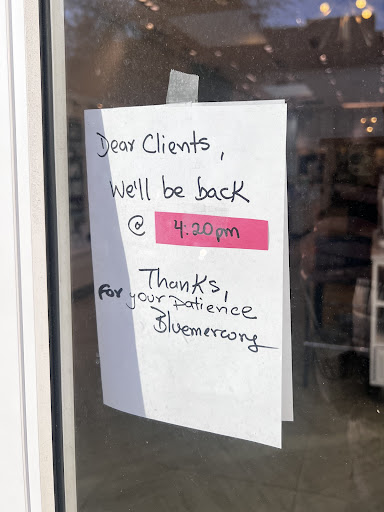 Dear Clients,
We'll be back
@ 4:20pm
Thanks,
For your patience
Bluemercury